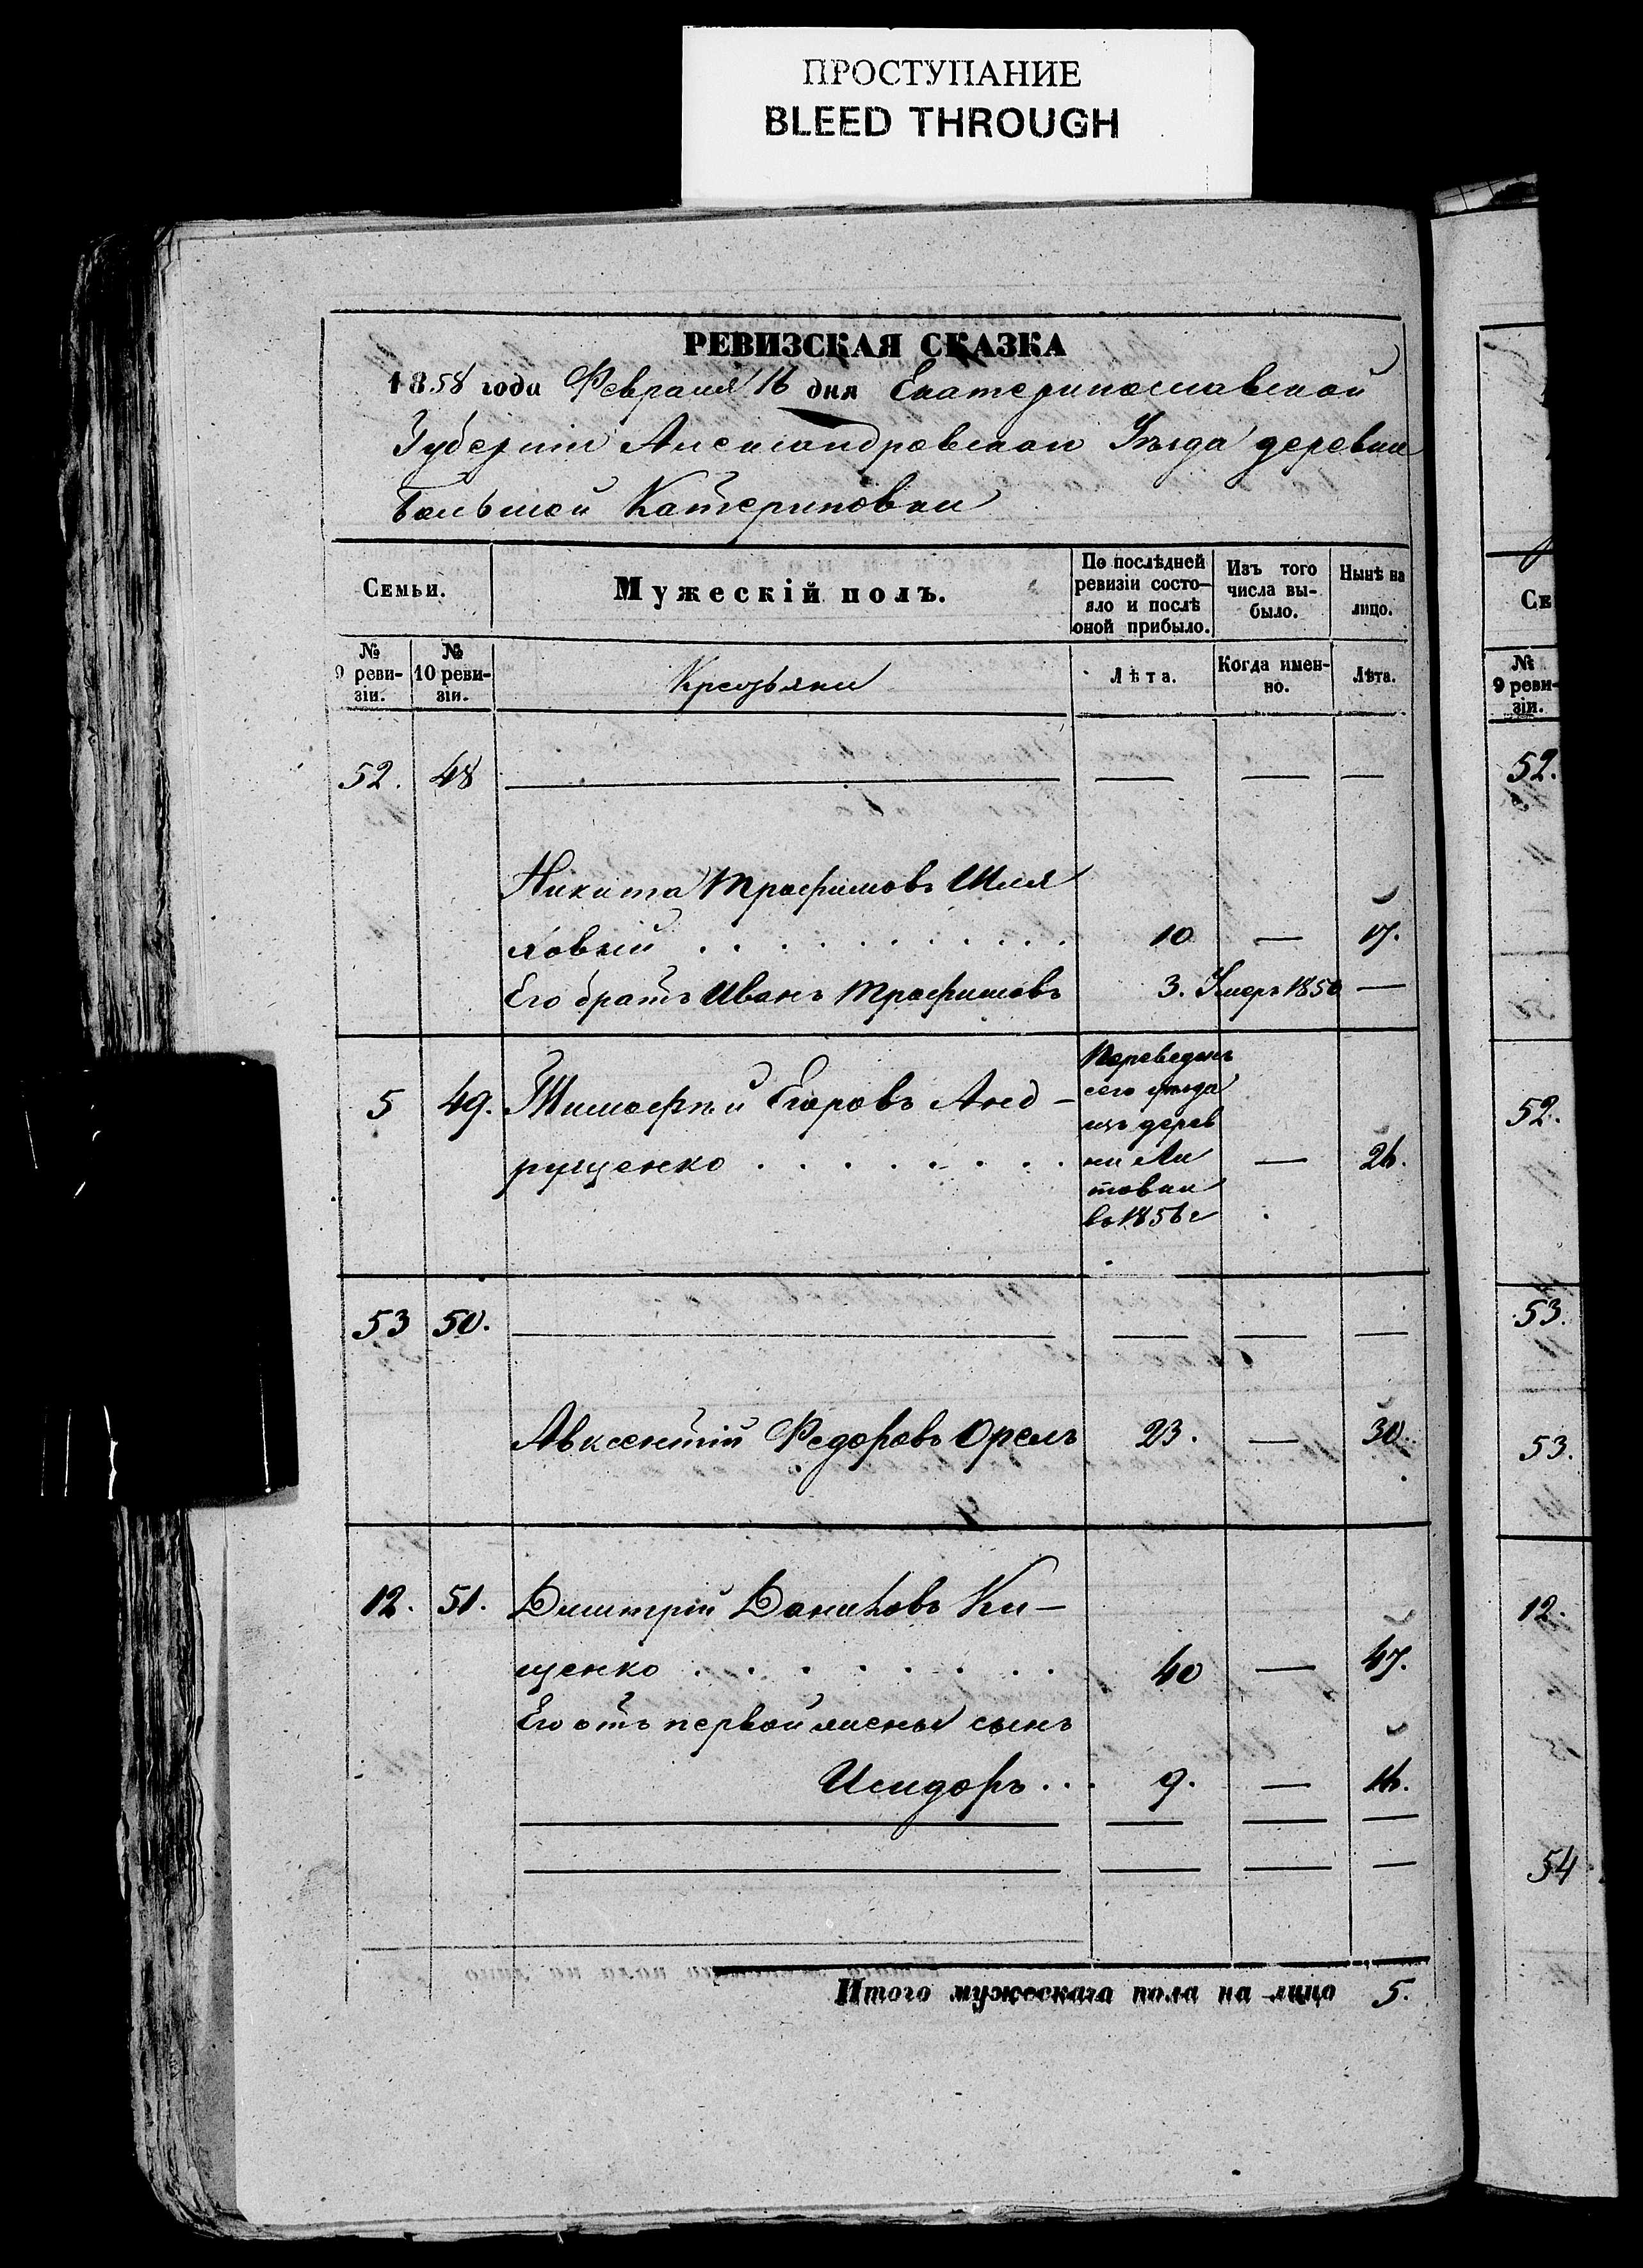 ПРОСТУПАНИЕ
BLEED THROUGH
РЕВИЗСКАЯ СКАЗКА
1858 года Февраля 16 дня Екатеринославской
Губерніи Александровскаго Уѣзда деревни
Большой Катериновки
Семьи.
Мужескій полъ.
По послѣдней
ревизіи состо-
яло и послѣ
оной прибыло.
Изъ того
числа вы-
было.
Нынѣ на
лицо.
№
9 реви-
зіи.
№
10 реви-
зіи.
Крестьяне
Лѣта.
Когда имен-
но.
Лѣта.
52. 48
Никита Трофимовъ Шля
ховый 10 — 17.
Его братъ Иванъ Трофимовъ 3. Умеръ 1850 —
5 49. Тимофѣй Егоровъ Анд-
рущенко — 26.
Переведенъ
сего уѣзда
изъ дерев
ни Ли
товки
въ 1856 г
53 50.
Авксентій Федоровъ Орелъ 23. — 30.
12. 51. Дмитрій Даниловъ Ки-
щенко 40 — 47.
Его отъ первой жены сынъ
Исидоръ 9. — 16.
Итого мужескаго пола на лицо 5.
Се
№
9 реви-
зіи.
52.
52.
53.
53.
12.
54